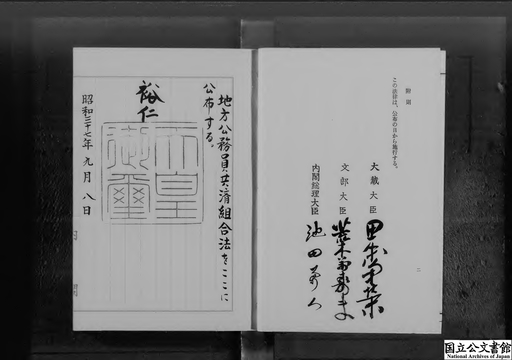 附則
この法律は、公布の日から施行する。
大蔵大臣 田中角榮
文部大臣 荒木萬壽夫
内閣総理大臣 池田勇人
二
地方公務員共済組合法をここに
公布する。
裕仁
天皇
御璽
昭和三十七年九月八日
国立公文書館
National Archives of Japan